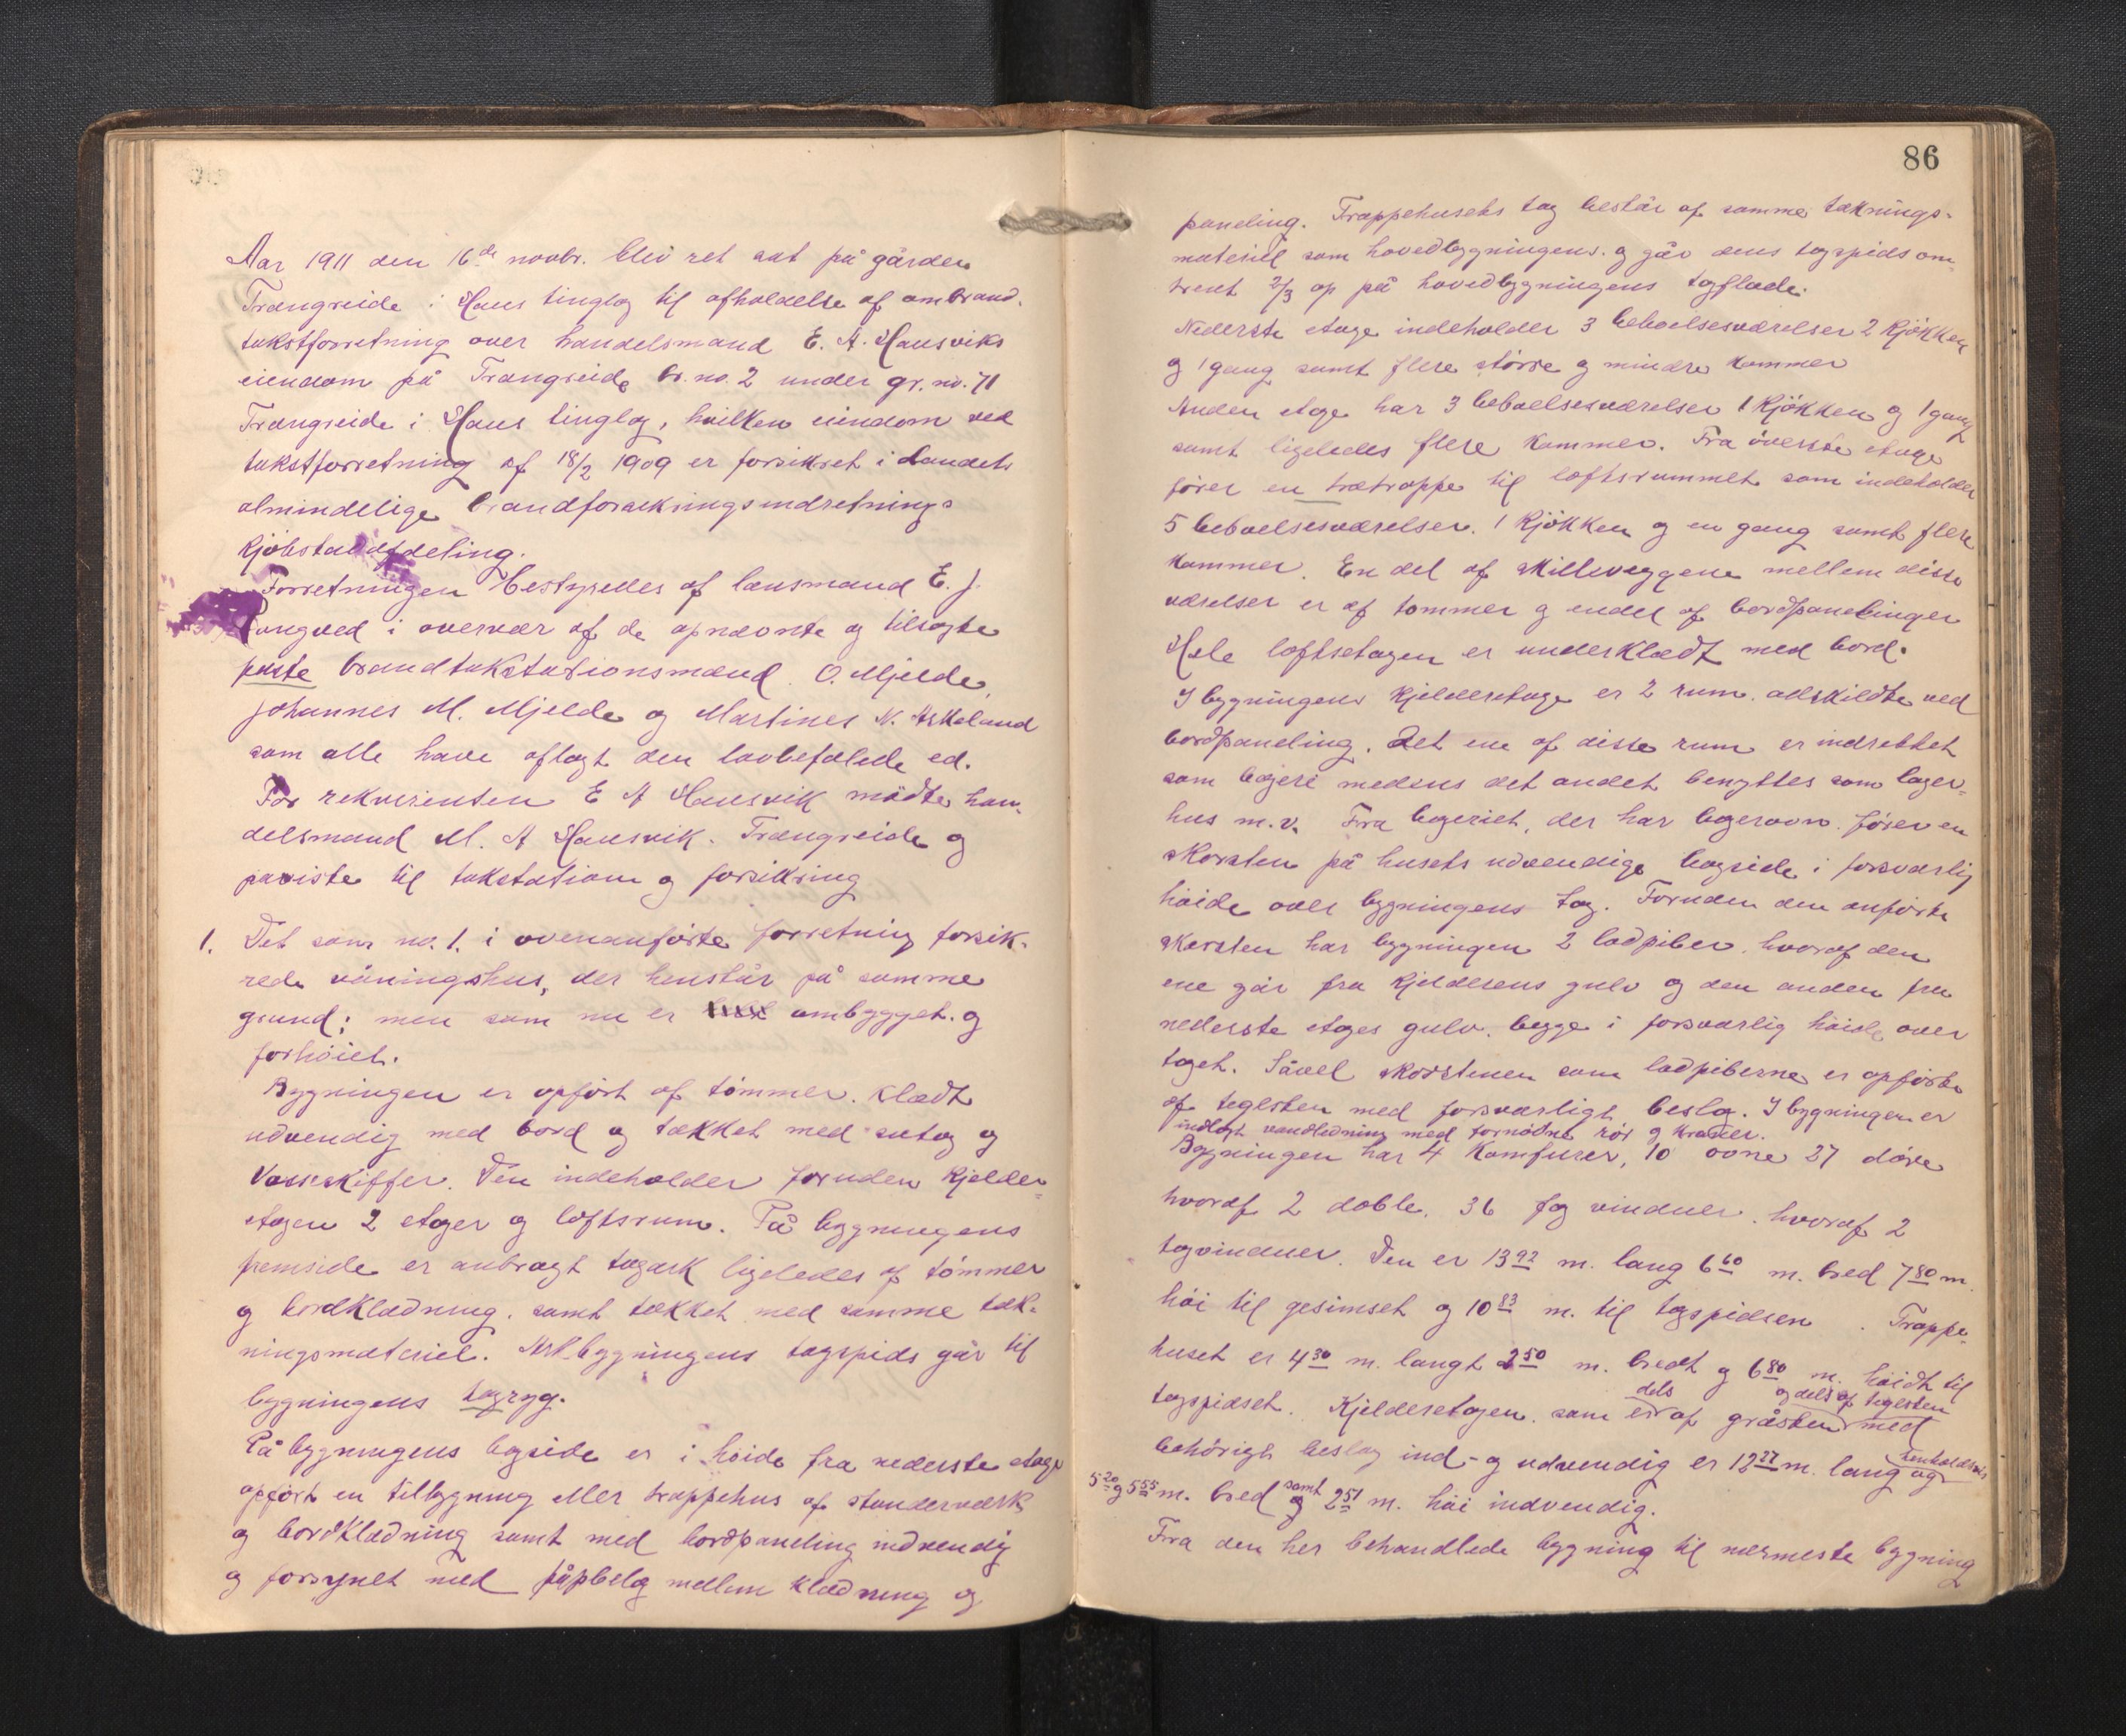 Aar 1911 den 16de novbr. blev ret sat på gården
Trængreide i Haus tinglag til afholdelse af ombrand-
takstforretning over handelsmand E. A. Hausviks
eiendom på Trængreide br. no. 2 under gr. no. 71
Trængreide i Haus tinglag, hvilken eiendom ved
takstforretning af 18/2 1909 er forsikret i Landets
almindelige brandforsikringsindretnings
Kjöbstadafdeling.
Forretningen bestyredes af lensmand E. J.
Langved i overvær af de opnævnte og tilsagte
faste brandtakstationsmænd O. Mjelde,
Johannes M. Mjelde og Martines N. Askeland
som alle have aflagt den lovbefalede ed.
For rekvirenten E A Hausvik mödte han-
delsmand M. A Hausvik. Trængreide og
paviste til takstation og forsikring
1. Det som no. 1. i ovenanförte forretning forsik-
rede våningshus, der henstår på samme
grund; men som nu er ombygget og
forhöiet.
Bygningen er opfört af tömmer. klædt
udvendig med bord og tækket med sutag og
Vosseskiffer. Den indeholder foruden kjelder-
etagen 2 etager og loftsrum. På bygningens
fremside er anbragt tagark ligeledes af tömmer
og bordklædning, samt tækket med samme tæk-
ningsmateriel. Arkbygningens tagspids går til
bygningens tagryg.
På bygningens bagside er i höide fra nederste etage
opfört en tilbygning eller trappehus af standerværk
og bordklædning samt med bordpaneling indvendig
og forsynet med papbelæg mellem klædning og
86
paneling. Trappehusets tag består af samme tæknings-
materiel som hovedbygningens. og går dens tagspids om
trent 2/3 op på hovedbygningens tagflade.
Nederste etage indeholder 3 beboelsesværelser 2 Kjökken
og 1 gang samt flere större og mindre kammer
Anden etage har 3 beboelsesværelser 1 Kjökken og 1 gang
samt ligeledes flere kammer. Fra överste etage
förer en trætrappe til loftsrummet som indeholder
5 beboelsesværelser. 1 Kjökken og en gang samt flere
kammer. En del af skilleveggene mellem disse
værelser er af tömmer og endel af bordpanelinger
Hele loftsetagen er underklædt med bord.
I bygningens kjelderetage er 2 rum. adskildte ved
bordpaneling. Det ene af disse rum er indrettet
som bageri medens det andet benyttes som lager-
hus m.v. Fra bageriet, der har bagerovn, förer en
skorsten på husets udvendige bagside i forsvarlig
höide over bygningens tag. Foruden den anförte
skorsten har bygningen 2 lodpiber. hvoraf den
ene går fra kjelderens gulv og den anden fra
nederste etages gulv. begge i forsvarlig höide over
taget. Såvel skorstenen som lodpiberne er opförte
af teglsten med forsvarligt beslag. I bygningen er
indlagt vandledning med fornödne rör og kraner.
Bygningen har 4 Komfurer, 10 ovne 27 döre
hvoraf 2 doble. 36 fag vinduer. hvoraf 2
tagvinduer. Den er 13 92 m. lang 6 60 m. bred 7 80 m.
höi til gesimset og 10 83 m. til tagspidsen. Trappe-
huset er 4 30 m. langt 2 50 m. bredt og 6 80 m. höidt til
tagspidset. Kjelderetagen. som er dels af gråsten og dels af teglsten med
behörigt beslag ind- og udvendig er 12 27 m. lang og henholdsvis
5 20 og 5 55 m. bred samt 2 51 m. höi indvendig.
Fra den her behandlede bygning til nærmeste bygning